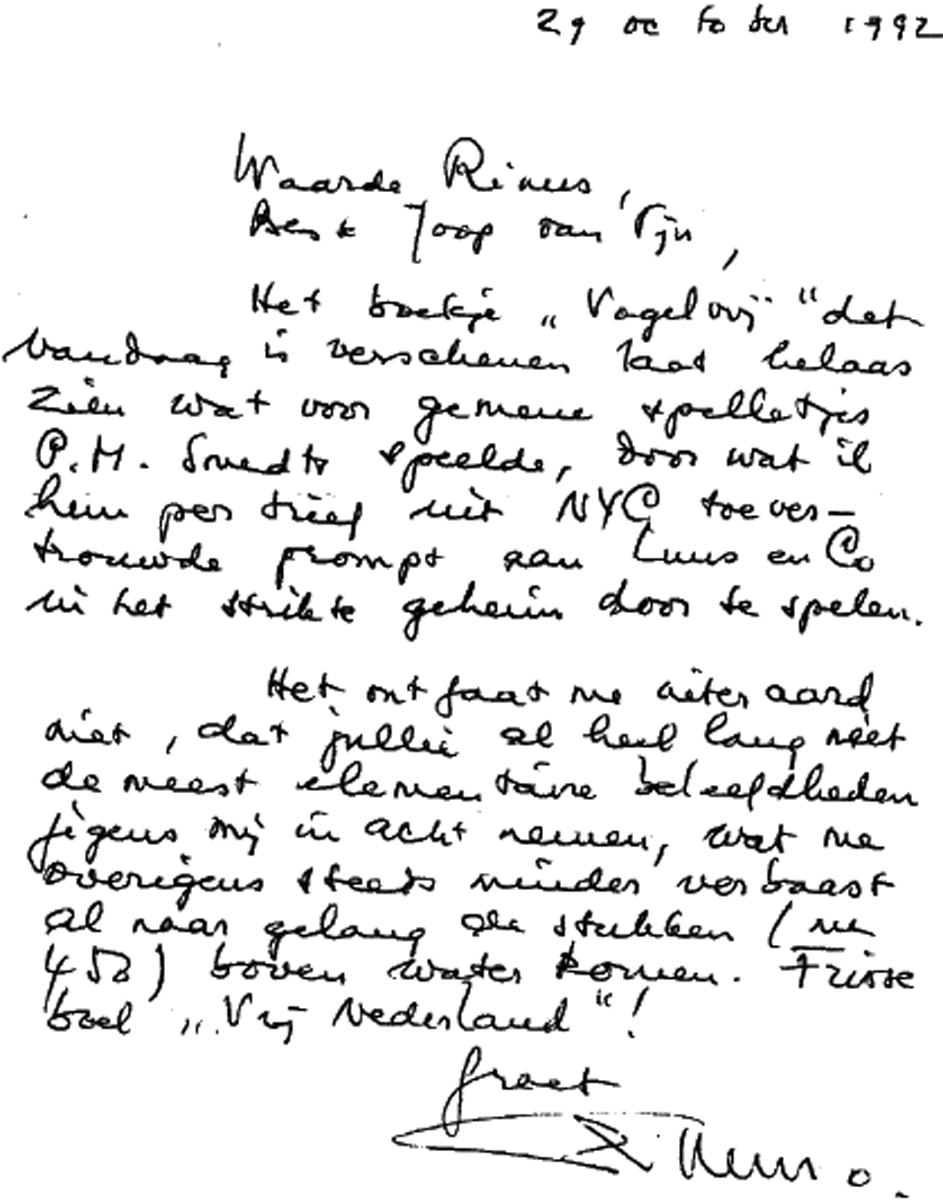 29 october 1992
Waarde Rinus,
Beste Joop van Tijn,
Het boekje „Vogelvrij" dat
vandaag is verschenen laat helaas
zien wat voor gemene spelletjes
P.M. Smedts speelde, door wat ik
hem per brief uit NYC toever-
trouwde prompt aan Luns en Co
in het strikte geheim door te spelen.
Het ontgaat me uiteraard
niet, dat jullie al heel lang niet
de meest elementaire beleefdheden
jegens mij in acht nemen, wat me
overigens steeds minder verbaast
al naar gelang de stukken (nu
450) boven water komen. Frisse
boel „Vrij Nederland"!
groet